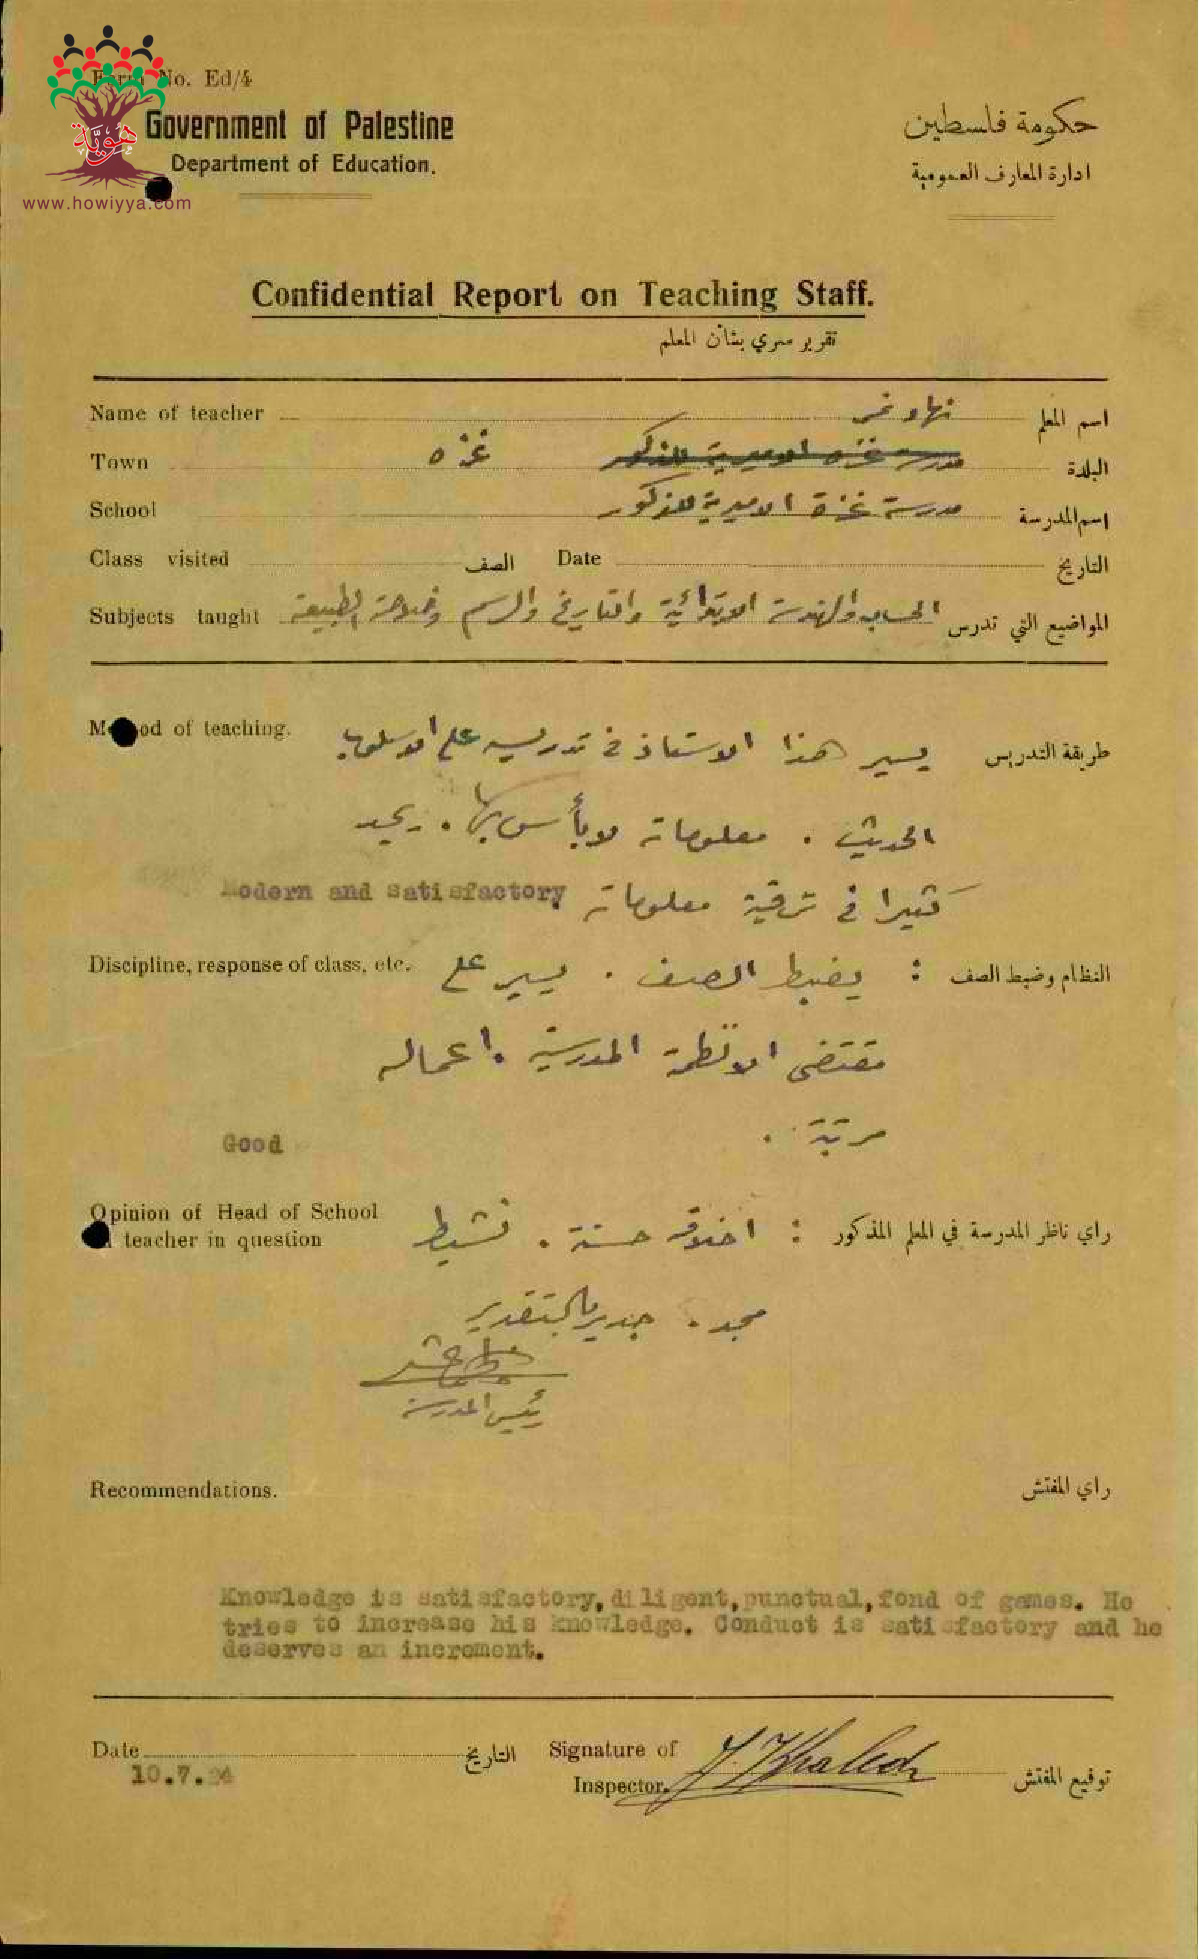 Form No. Ed/4
هُوِيَّة
www.howiyya.com
Government of Palestine
Department of Education.
حكومة فلسطين
ادارة المعارف العمومية
Confidential Report on Teaching Staff.
تقرير سري بشأن المعلم
Name of teacher نهاد نمر اسم المعلم
Town غزه مدرسة غزه الاميرية للذكور البلدة
School مدرسة غزة الاميرية للذكور اسم المدرسة
Class visited الصف Date التاريخ
Subjects taught الحساب والهندسة الابتدائية والتاريخ والرسم وفلاحة الطبيعة المواضيع التي تدرس
Method of teaching. طريقة التدريس يسير هذا الاستاذ في تدريسه على الاسلوب
الحديث . معلوماته لا بأس بها . يجد
كثيرا في ترقية معلوماته
Modern and satisfactory
Discipline, response of class, etc. النظام وضبط الصف : يضبط الصف . يسير على
مقتضى الانظمة المدرسية . اعماله
مرتبة .
Good
Opinion of Head of School
teacher in question
راي ناظر المدرسة في المعلم المذكور : اخلاقه حسنة . نشيط
مجد . جدير بالتقدير
رئيس المدرسة
Recommendations. راي المفتش
Knowledge is satisfactory, diligent, punctual, fond of games. He
tries to increase his knowledge. Conduct is satisfactory and he
deserves an increment.
Date التاريخ Signature of
10.7.
Inspector. Khaled توقيع المفتش